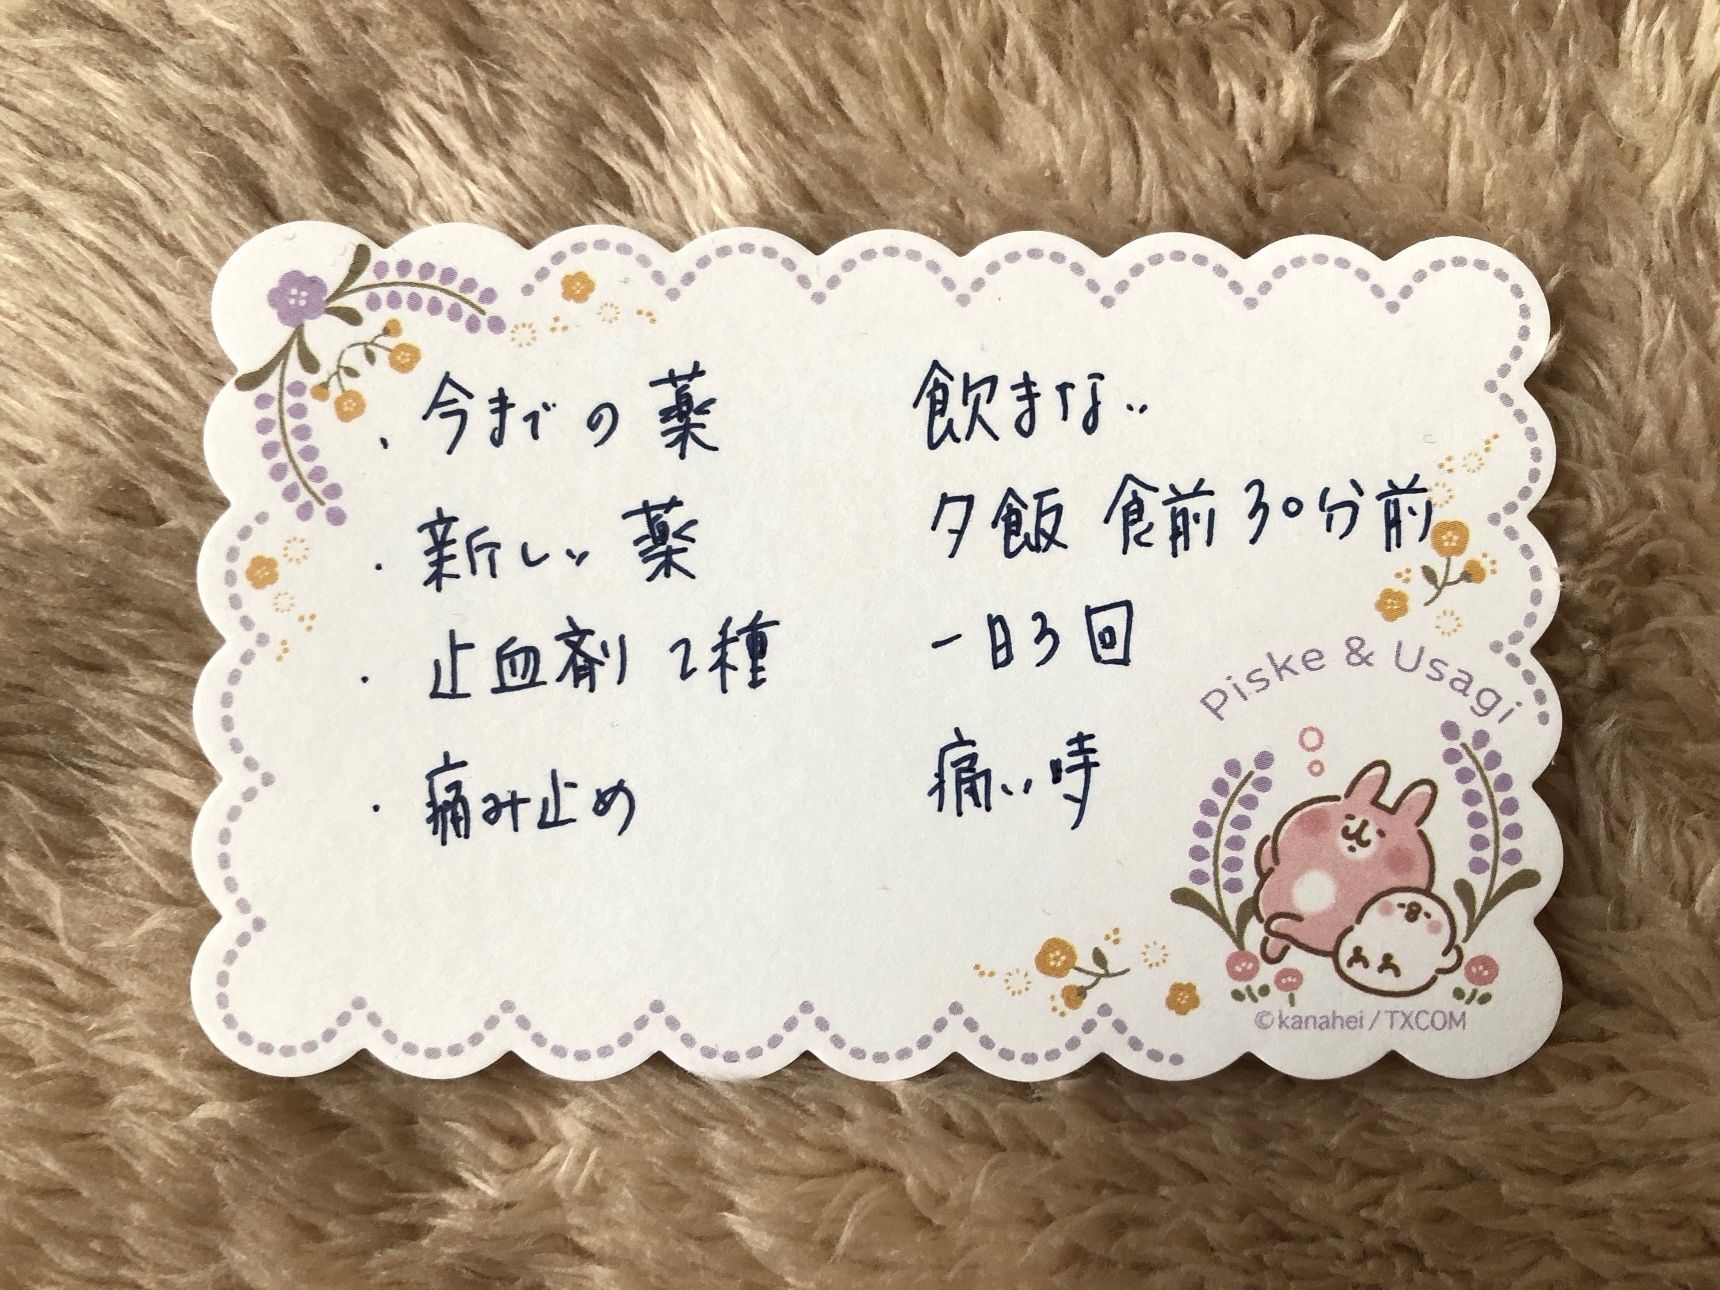 、今までの薬 飲まない
・新しい薬 夕飯 食前30分前
・止血剤 2種 一日3回
・痛み止め 痛い時
Piske & Usagi
©kanahei / TXCOM